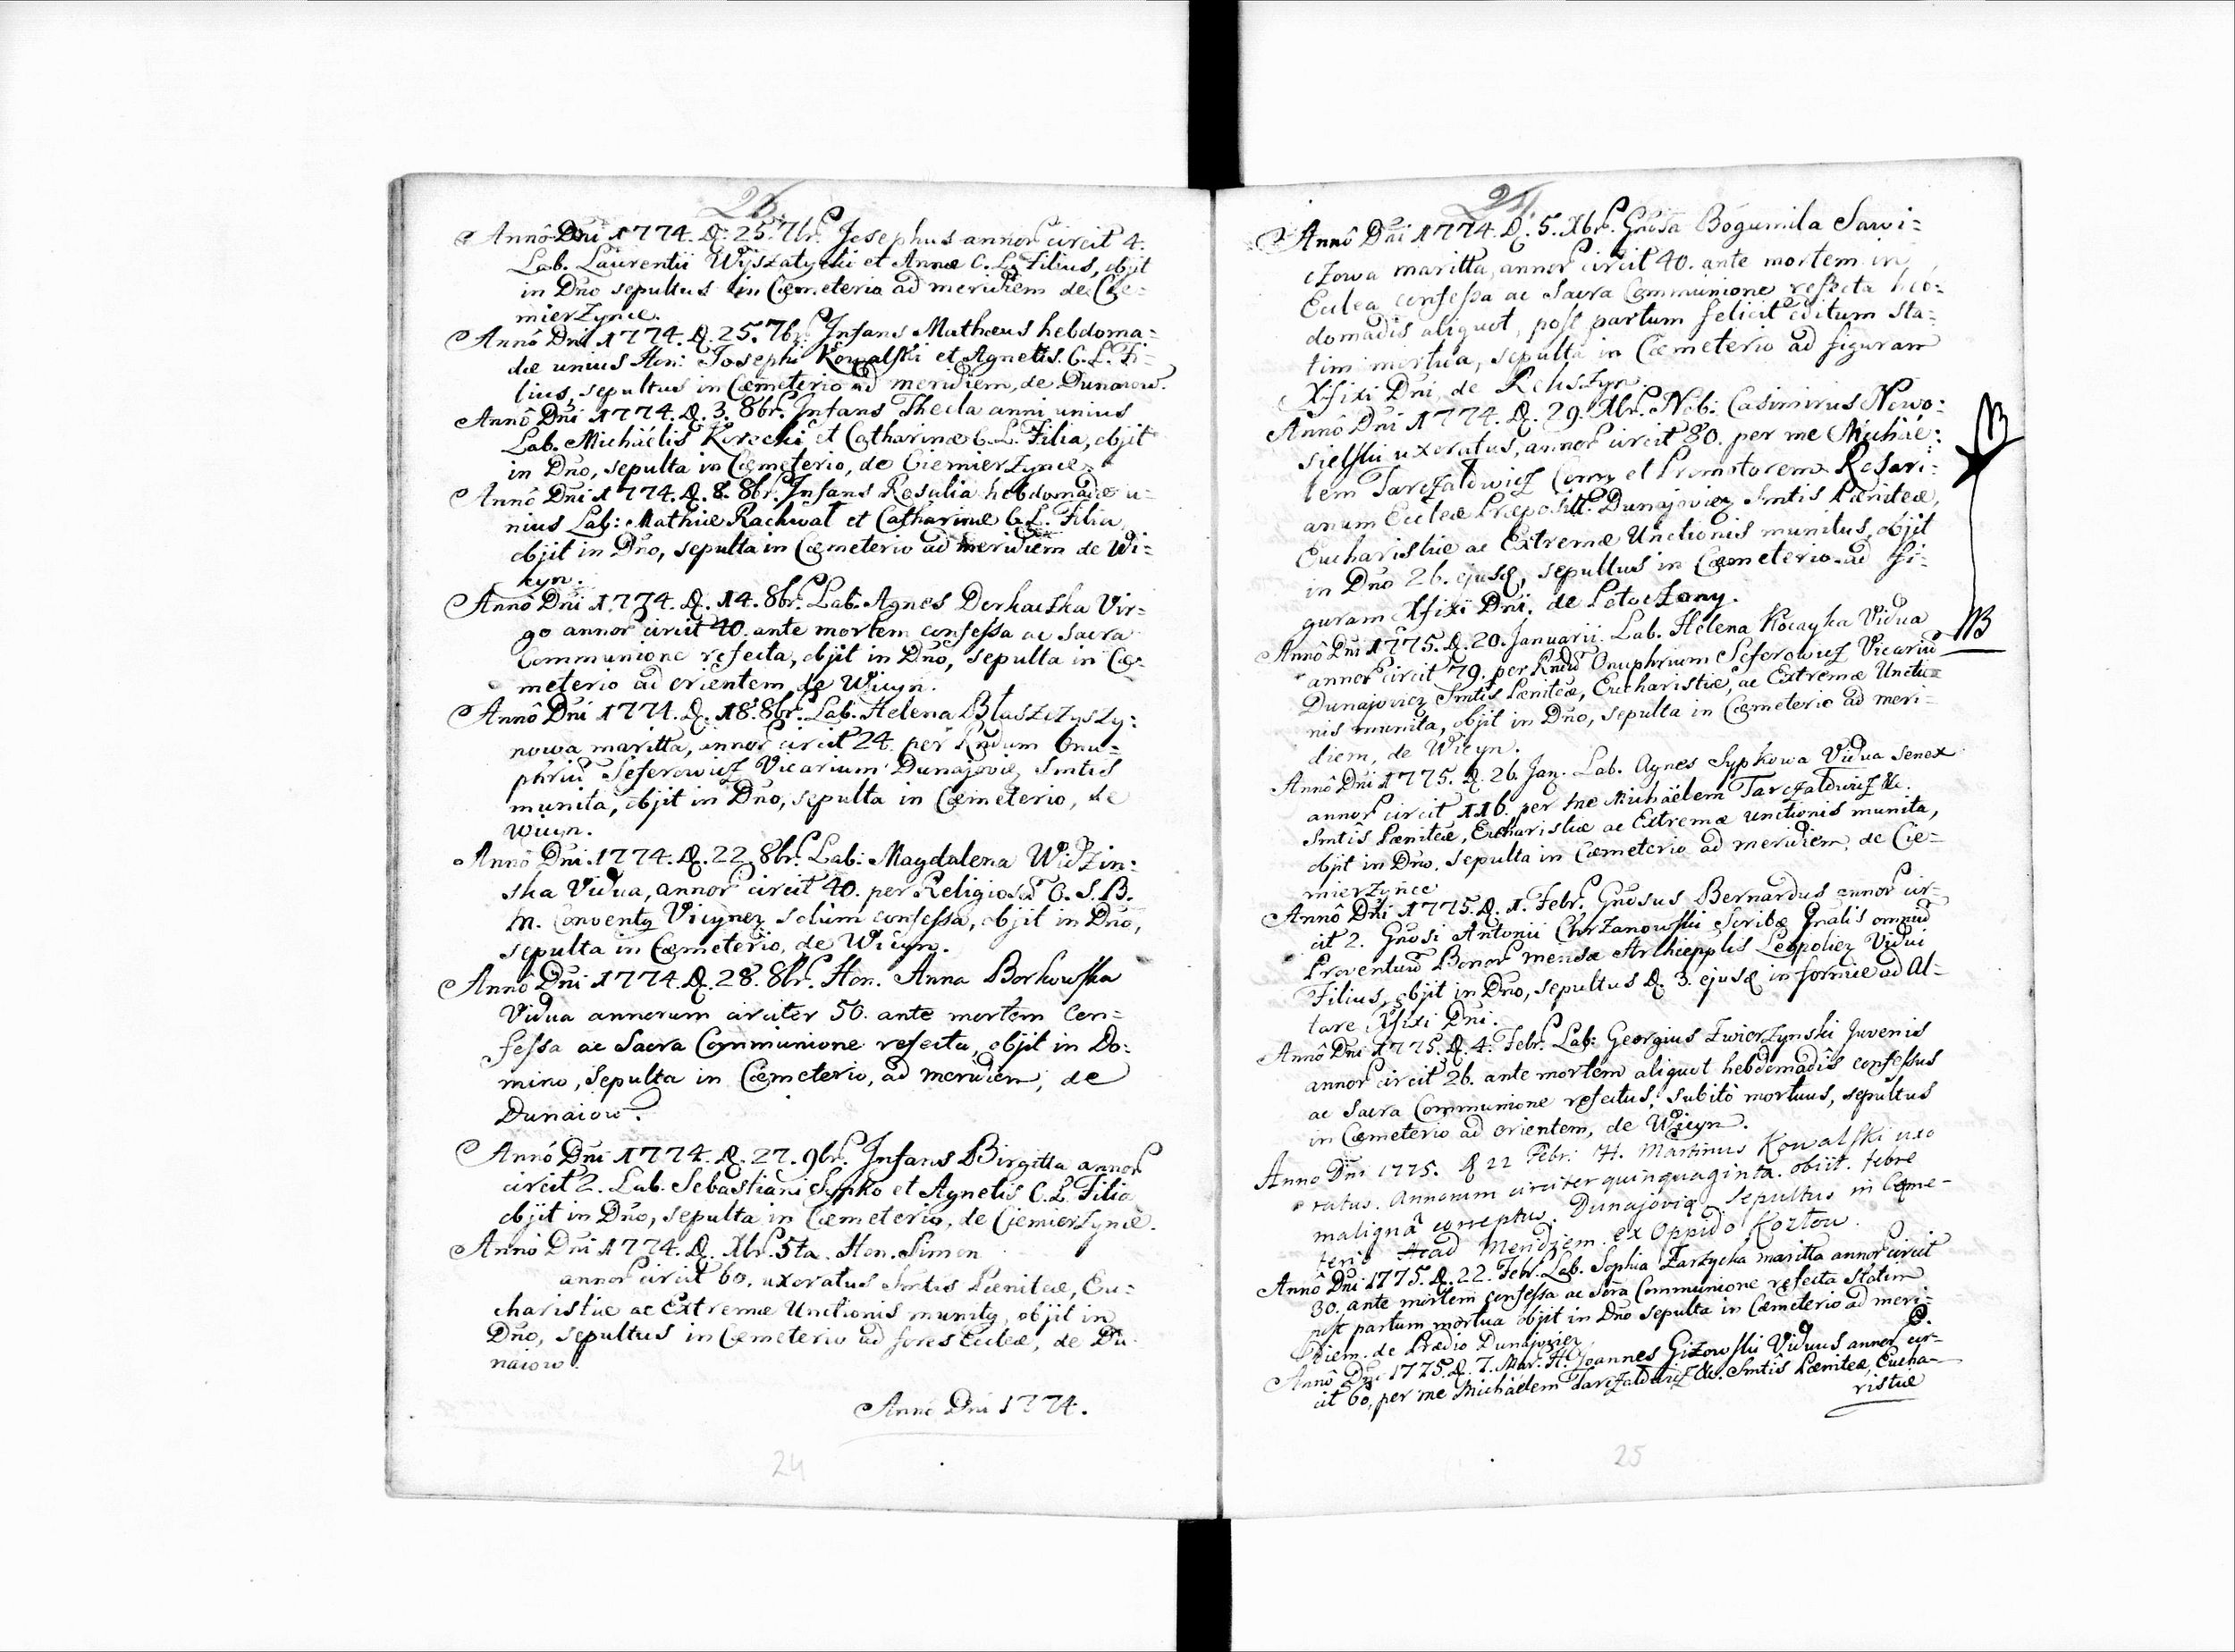 Annô Dni 1774. D. 25. 7br. Josephus annor circit 4.
Lab. Laurentii Wyszatycki et Annæ C. L. Filius, objit
in Dno sepultus in Cæmeterio ad meridiem de Cie=
mierzynce.
Annô Dni 1774. D. 25. 7br. Infans Mathæus hebdoma=
dæ unius Hon: Josephi Kowalski et Agnetis C. L. Fi=
lius, sepultus in Cæmeterio ad meridiem, de Dunaiow.
Annô Dni 1774. D. 3. 8br. Infans Thecla anni unius
Lab. Michäelis Kirecki et Catharinæ C. L. Filia, objit
in Dno, sepulta in Cæmeterio, de Ciemierzynce.
Annô Dni 1774. D. 8. 8br. Infans Rosalia hebdomadæ u=
nius Lab: Mathiæ Rachwał et Catharinæ C. L. Filia
objit in Dno, sepulta in Cæmeterio ad meridiem de Wi=
cyn.
Annô Dni 1774. D. 14. 8br. Lab. Agnes Derkaczka Vir=
go annor circit 40. ante mortem confessa ac Sacra
Communione refecta, objit in Dno, sepulta in Cæ=
meterio ad orientem de Wicyn.
Annô Dni 1774. D. 18. 8br. Lab. Helena Błaszczyszy=
nowa maritta, annor circit 24. per Rndum Onu=
phriu Seferowicz Vicarium Dunajovien Smtis
munita, objit in Dno, sepulta in Cæmeterio, de
Wicyn.
Annô Dni. 1774. D. 22. 8br. Lab: Magdalena Widzin:
ska Vidua, annor circit 40. per Religiosu O. S. B.
M. Conventq Vicynen solum confessa, objit in Dno,
sepulta in Cæmeterio, de Wicyn.
Annô Dni 1774. D. 28. 8br. Hon. Anna Borkowska
Vidua annorum circiter 50. ante mortem Con=
fessa ac Sacra Communione refecta, objit in Do:
mino, Sepulta in Cæmeterio, ad meridiem, de
Dunaiow.
Annô Dni 1774. D. 27. 9br. Infans Birgitta annor
circit 2. Lab. Sebastiani Sypko et Agnetis C. L. Filia
objit in Dno, sepulta in Cæmeterio, de Ciemierzynce.
Annô Dni 1774. D. Xbr. 5ta. Hon. Simon
annor circit 60. uxoratus Smtis Pænitæ, Eu=
charistiæ ac Extremæ Unctionis munitq, objit in
Dno, sepultus in Cæmeterio ad fores Eccleæ, de Du
naiow.
Annô Dni 1774.
24
Annô Dni 1774. D. 5. Xbr. Gnosa Bogumila Sawi=
czowa maritta, annor circit 40. ante mortem in
Ecclea confessa ac Sacra Communione refecta heb=
domadis aliquot, post partum felicit editum sta=
tim mortua, sepulta in Cæmeterio ad figuram
Xfixi Dni, de Rekszyn.
Annô Dni 1774. D. 29. Xbr. Nob: Casimirus Nowo:
sielski uxoratus, annor circit 80. per me Michäe:
lem Tarczałowicz Comm et Promotorem Rosari:
anum Eccleæ Præposit. Dunajovien Smtis Pæniteæ,
Eucharistiæ ac Extremæ Unctionis munitus, objit
in Dno 26. ejusq, sepultus in Cæmeterio ad fi=
guram Xfixi Dni, de Potoczany.
NB
Annô Dni 1775. D. 20. Januarii. Lab. Helena Kocayka Vidua
annor circit 79. per Rndu Onuphrium Seferowicz Vicariu
Dunajovien Smtis Pæniteæ, Eucharistiæ, ac Extremæ Unctio
nis munita, objit in Dno, sepulta in Cæmeterio ad meri=
diem, de Wicyn.
Annô Dni 1775. D. 26. Jan. Lab. Agnes Sypkowa Vidua senex
annor circit 116. per me Michäelem Tarczałowicz &c.
Smtis Pæniteæ, Eucharistiæ ac Extremæ unctionis munita,
objit in Dno, sepulta in Cæmeterio ad meridiem, de Cie=
mierzynce
Annô Dni 1775. D. 1. Febr. Gnosus Bernardus annor cir=
cit 2. Gnosi Antonii Chrzanowski Scribæ Gnalis omniu
Proventuu Bonor mensæ Archieppalis Leopolien Vidui
Filius, objit in Dno, sepultus D. 3. ejusq in fornice ad Al=
tare Xfixi Dni.
Annô Dni 1775. D. 4. Febr. Lab: Georgius Zwierzynski Juvenis
annor circit 26. ante mortem aliquot hebdomadis confessus
ac Sacra Communione refectus, subito mortuus, sepultus
in Cæmeterio ad orientem, de Wicyn.
Anno Dni 1775. D 22 Febr: H. Martinus Kowalski uxo
ratus. Annorum circiter quinquaginta. obiit. febre
maligna correptus. Dunajoviæ Sepultus in Cæme-
terio ad Meridiem. ex Oppido Kozłow.
Annô Dni 1775. D. 22. Febr. Lab. Sophia Zarzycka maritta annor circit
30. ante mortem confessa ac Sacra Communione refecta statim
post partum mortua objit in Dno sepulta in Cæmeterio ad meri=
diem. de Prædio Dunajovien.
Annô Dni 1775. D. 7. Mar. H. Joannes Gizowski Viduus annor cir=
cit 60, per me Michäelem Tarczałowicz &c. Smtis Pæniteæ, Eucha=
ristiæ
25